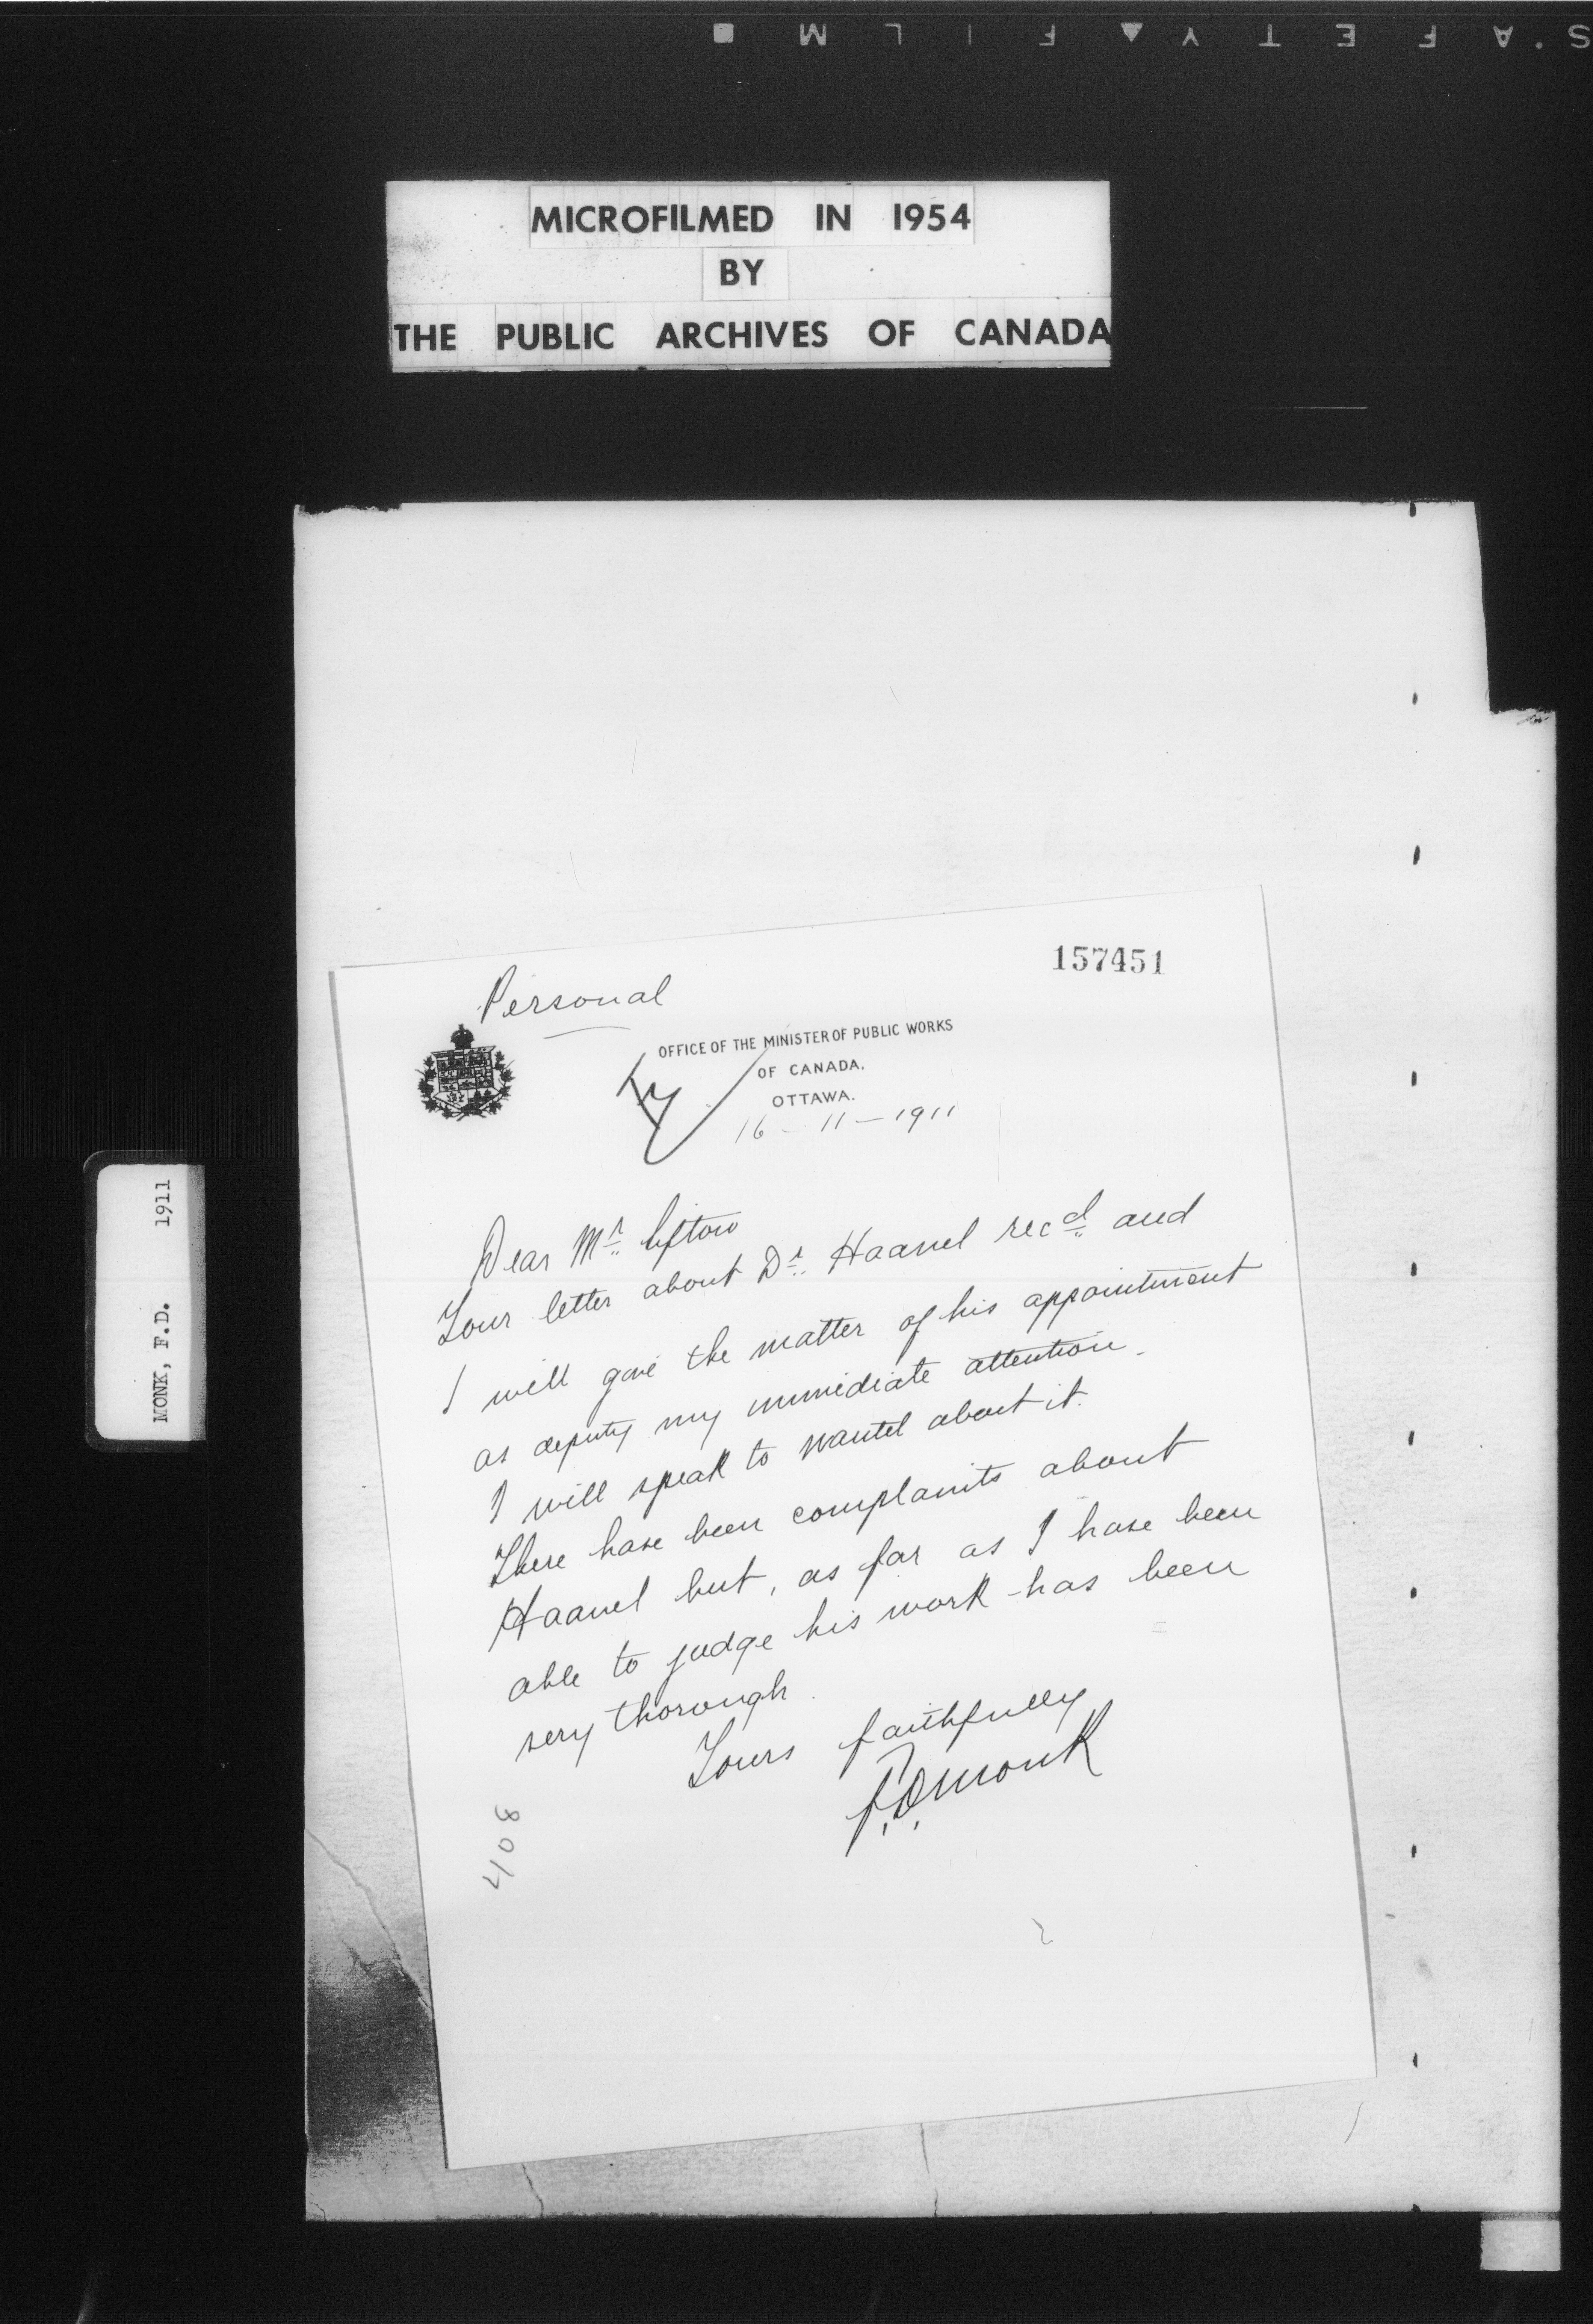 S'AFETY▲FILM■
MICROFILMED IN 1954
BY
THE PUBLIC ARCHIVES OF CANADA
157451
Personal
OFFICE OF THE MINISTER OF PUBLIC WORKS
OF CANADA.
OTTAWA.
16 - 11 - 1911
Dear Mr.
Your letter about Dr. Haanel recd and
I will give the matter of his appointment
as deputy my immediate attention.
I will speak to Nantel about it.
There have been complaints about
Haanel but, as far as I have been
able to judge his work has been
very thorough.
Yours faithfully
F.D. Monk
MONK, F.D. 1911